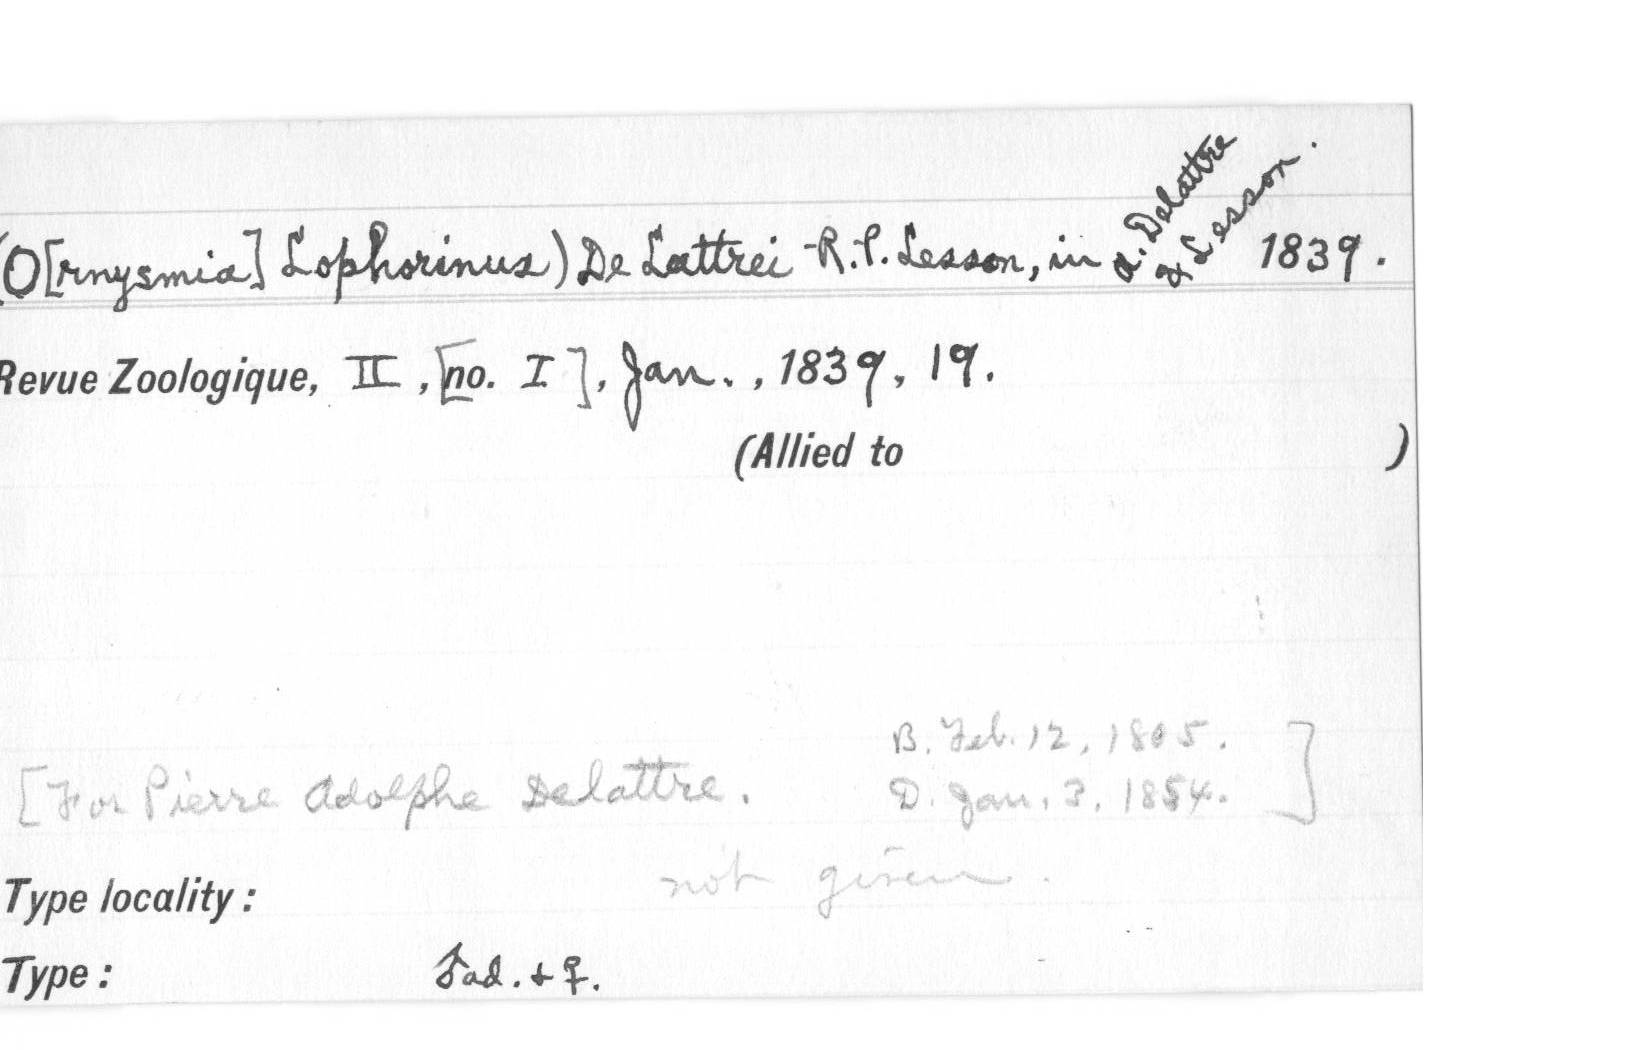 (O[rnysmia] Lophorinus) De Lattrei R.P. Lesson, in A. Delattre & Lesson. 1839.
Revue Zoologique, II, [no. I], Jan., 1839, 19.
(Allied to )
B. Feb. 12, 1805.
[For Pierre Adolphe Delattre. D. Jan. 3, 1854.]
Type locality: not given.
Type: ♂ad. + ♀.